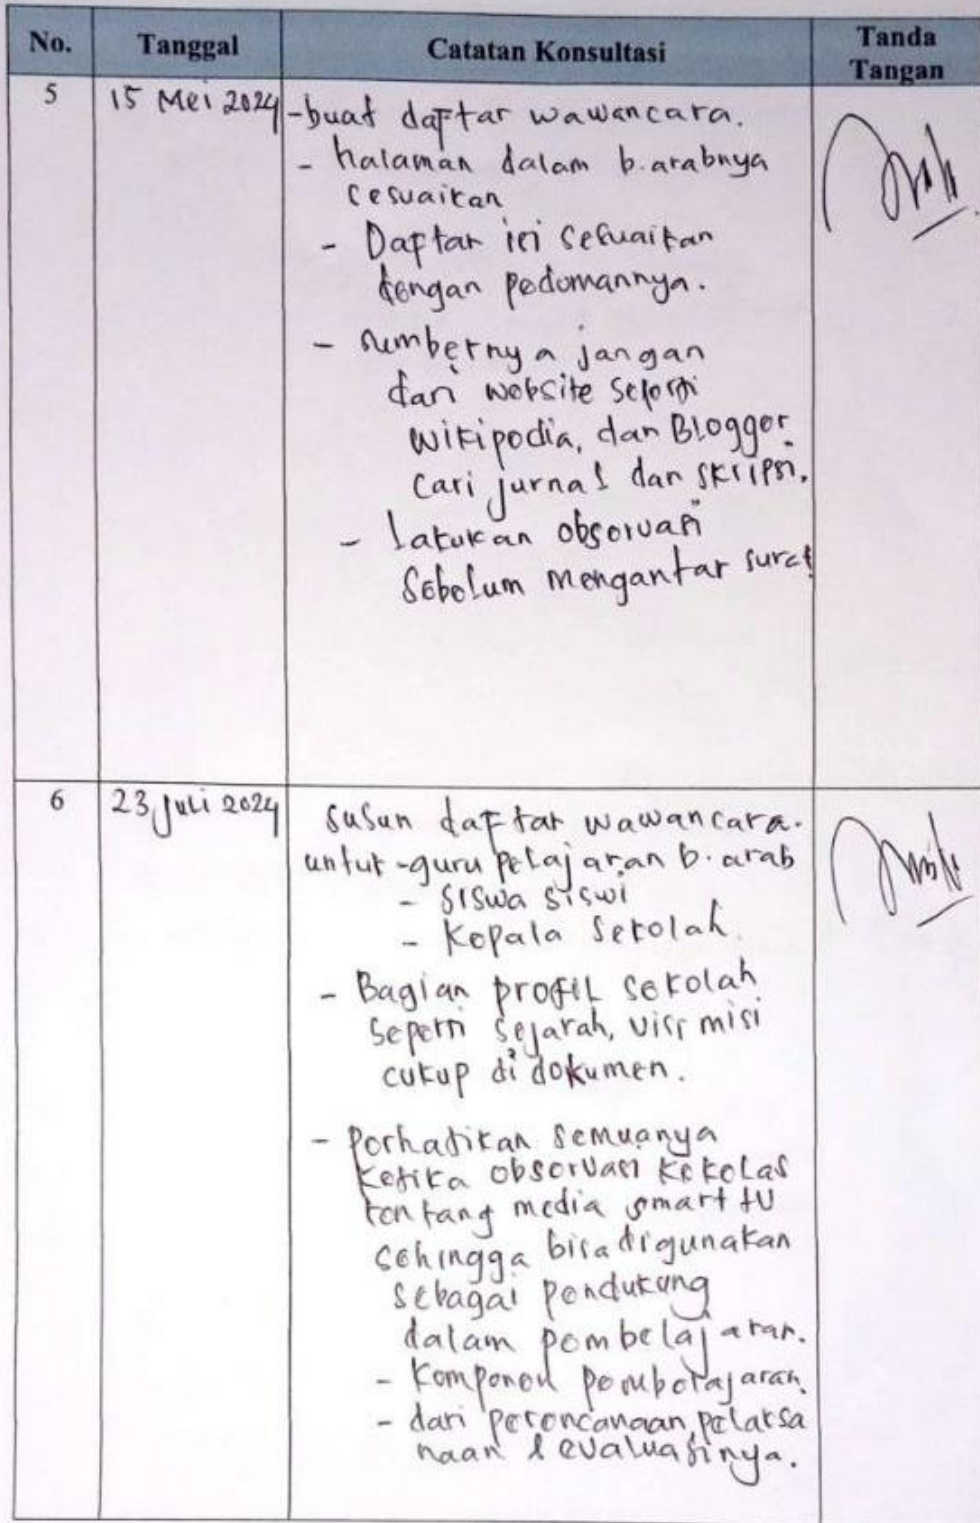 No. Tanggal Catatan Konsultasi Tanda Tangan
5 15 Mei 2024 -buat daftar wawancara.
- halaman dalam b.arabnya
sesuaikan
- Daftar isi sesuaikan
dengan pedomannya.
- sumbernya jangan
dari website seperti
wikipedia, dan Blogger.
cari jurnal dan skripsi.
- lakukan observasi
Sebelum mengantar surat
6 23 Juli 2024 susun daftar wawancara.
untuk -guru pelajaran b. arab
- siswa siswi
- Kepala sekolah.
- Bagian profil sekolah
seperti sejarah, visi misi
cukup di dokumen.
- Perhatikan semuanya
ketika observasi kekelas
tentang media smart tv
sehingga bisa digunakan
sebagai pendukung
dalam pembelajaran.
- Komponen pembelajaran.
- dari perencanaan, pelaksa
naan & evaluasinya.